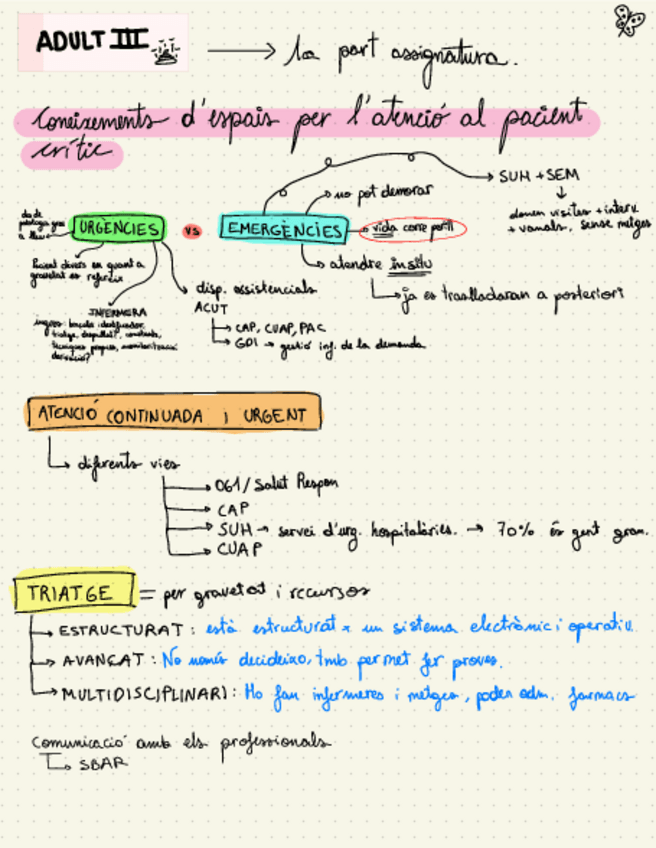 ADULT III → 1a part assignatura.
Coneixements d'espais per l'atenció al pacient
crític
SUH + SEM
↓
donen visites + interv.
+ vanals, sense metges
no pot demorar
URGÈNCIES vs EMERGÈNCIES → vida corre perill
→ atendre insitu
→ ja es traslladaran a posteriori
Pacient divers en quant a
gravetat es refereix
disp. assistencials
ACUT
→ CAP, CUAP, PAC
→ GDI → gestió inf. de la demanda
INFERMERA
ATENCIÓ CONTINUADA I URGENT
→ diferents vies
→ 061/Salut Respon
→ CAP
→ SUH → servei d'urg. hospitalàries. → 70% és gent gran.
→ CUAP
TRIATGE = per gravetat i recursos
→ ESTRUCTURAT: està estructurat x un sistema electrònic i operatiu
→ AVANÇAT: No només decideixo, tmb permet fer proves.
→ MULTIDISCIPLINARI: Ho fan infermeres i metges, poden adm. farmacs
Comunicació amb els professionals
→ SBAR